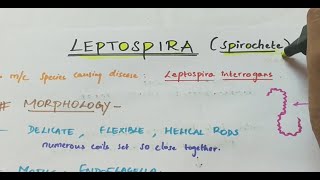 LEPTOSPIRA (spirochete)
m/c species causing disease : Leptospira interrogans.
# MORPHOLOGY -
- DELICATE, FLEXIBLE, HELICAL RODS
numerous coils set so close together.
ENDOFLAGELLA